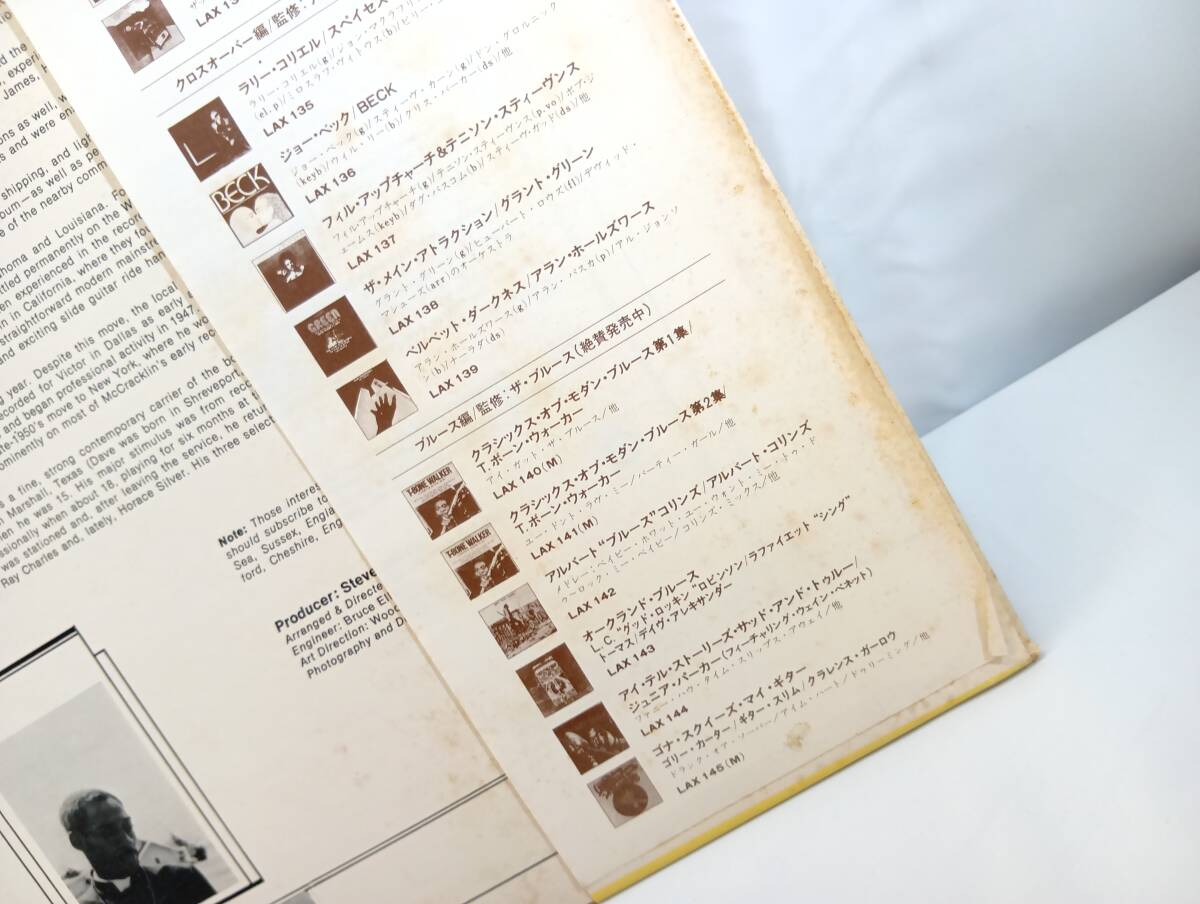 d the
, experi
James, H
ons as well, w
s and were en
shipping, and ligh
lbum—as well as pe
e of the nearby comm
homa and Louisiana. Fo
ttled permanently on the W
en experienced in the record
n in California, where they fo
straightforward modern mainstre
and exciting slide guitar ride han
g year. Despite this move, the local
ecorded for Victor in Dallas as early a
and began professional activity in 1947
te-1950's move to New York, where he wo
ominently on most of McCracklin's early rec
s a fine, strong contemporary carrier of the bo
Marshall, Texas (Dave was born in Shreveport
en he was 15. His major stimulus was from reco
ssionally when about 18, playing for six months at
was stationed and, after leaving the service, he return
Ray Charles and, lately, Horace Silver. His three select
Note: Those interes
should subscribe to
Sea, Sussex, Engla
ford, Cheshire, Eng
Producer: Steve
Arranged & Directe
Engineer: Bruce El
Art Direction: Wood
Photography and D
LAX 13
クロスオーバー編/監修:
ラリー・コリエル/スペイセス
ラリー・コリエル(g)/ジョン・マクラフリン
(el.p)/ミロスラフ・ヴィトウス(b)/ビリー・コ
LAX 135
ジョー・ベック/BECK
ジョー・ベック(g)/スティーヴ・カーン(g)/ドン・グロルニック
(keyb)/ウィル・リー(b)/クリス・パーカー(ds)/他
LAX 136
BECK
フィル・アップチャーチ&テニソン・スティーヴンス
フィル・アップチャーチ(g)/テニソン・スティーヴンス(p.vo)/ボブ・ジ
ェームス(keyb)/ダグ・バスコム(b)/スティーヴ・ガッド(ds)/他
LAX 137
ザ・メイン・アトラクション/グラント・グリーン
グラント・グリーン(g)/ヒューバート・ロウズ(fl)/デヴィッド・
マシューズ(arr)のオーケストラ
LAX 138
GREEN
ベルベット・ダークネス/アラン・ホールズワース
アラン・ホールズワース(g)/アラン・パスカ(p)/アル・ジョンソ
ン(b)/ナーラダ(ds)
LAX 139
ブルース編/監修:ザ・ブルース(絶賛発売中)
クラシックス・オブ・モダン・ブルース第1集/
T.ボーン・ウォーカー
アイ・ガット・ザ・ブルース/他
LAX 140(M)
T-BONE WALKER
クラシックス・オブ・モダン・ブルース第2集/
T.ボーン・ウォーカー
ユー・ドント・ラヴ・ミー/パーティー・ガール/他
LAX 141(M)
T-BONE WALKER
アルバート“ブルーズ”コリンズ/アルバート・コリンズ
メドレー:ベイビー・ホワット・ユー・ウォント・ミー・トゥ・ド
ゥ〜ロック・ミー・ベイビー/コリンズ・ミックス/他
LAX 142
オークランド・ブルース
L.C.“グッド・ロッキン”ロビンソン/ラファイエット“シング”
トーマス/デイヴ・アレキサンダー
LAX 143
アイ・テル・ストーリーズ・サッド・アンド・トゥルー/
ジュニア・パーカー(フィーチャリング・ウェイン・ベネット)
ファニー・ハウ・タイム・スリップス・アウェイ/他
LAX 144
ゴナ・スクイーズ・マイ・ギター
ゴリー・カーター/ギター・スリム/クラレンス・ガーロウ
ドランク・オア・ソーバー/アイム・ハート/ドゥリーミング/他
LAX 145(M)